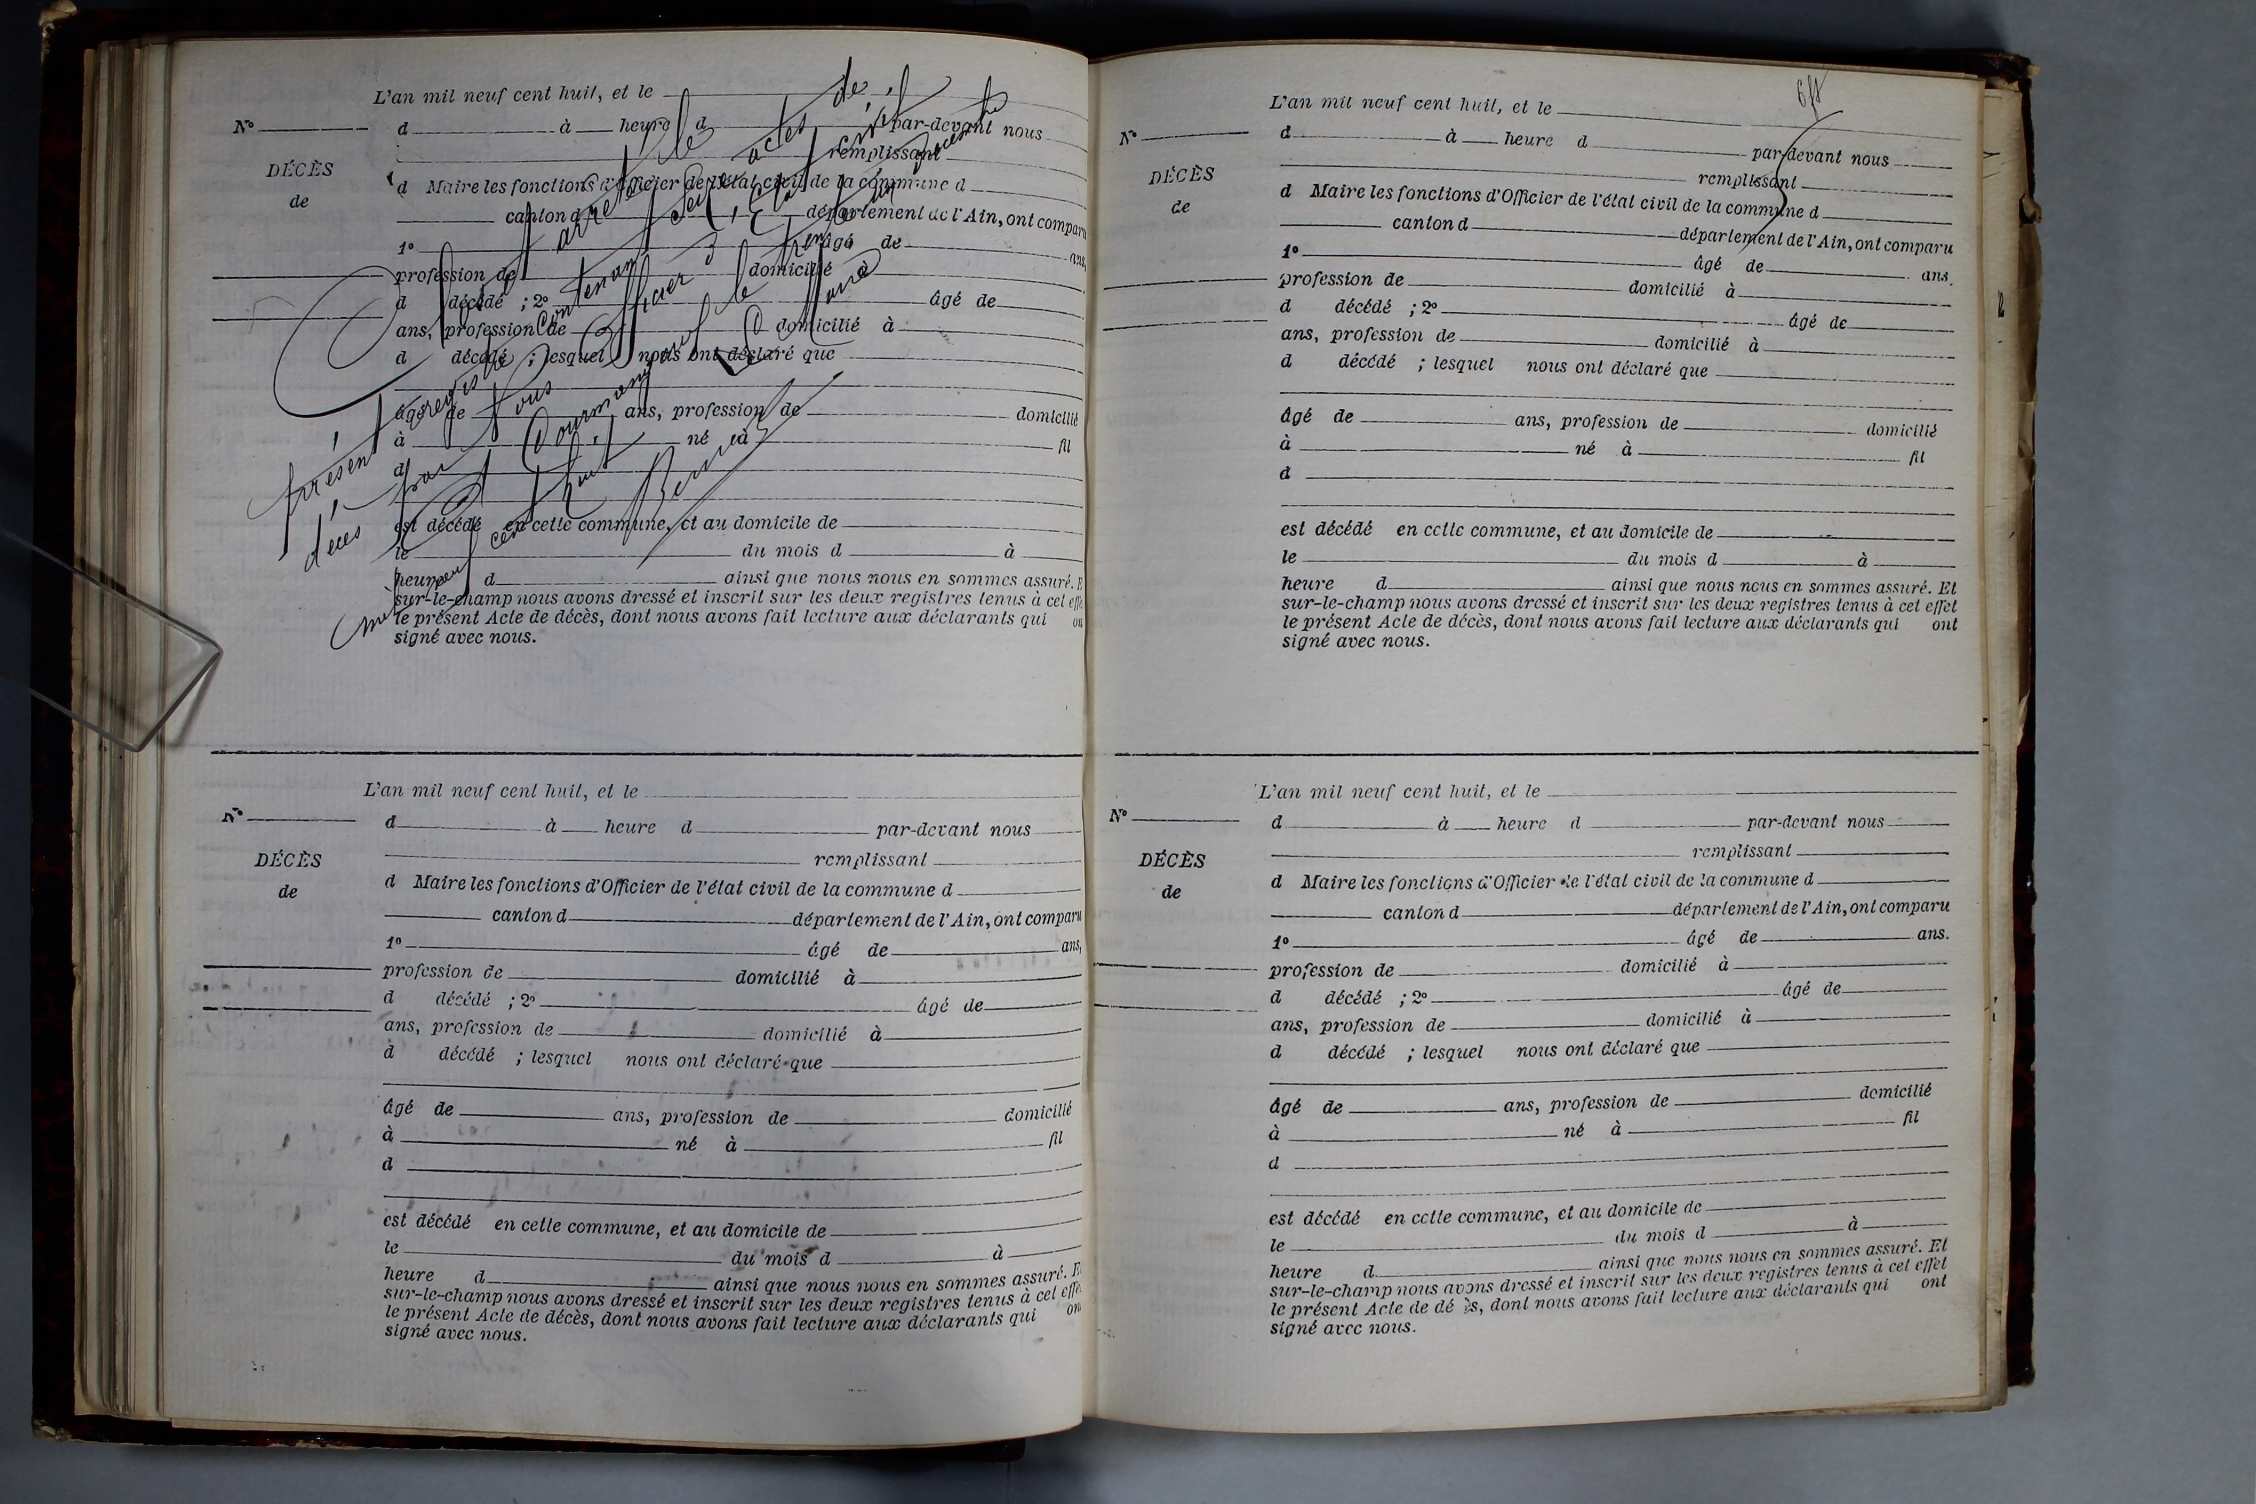 L'an mil neuf cent huit, et le
N° d à heure d par-devant nous
remplissant
DÉCÈS
de
d Maire les fonctions d'Officier de l'état civil de la commune d
canton d département de l'Ain, ont comparu
1° âgé de ans,
profession de domicilié à
d décédé ; 2° âgé de
ans, profession de domicilié à
d décédé ; lesquel nous ont déclaré que
âgé de ans, profession de domicilié
à né à fil
d
est décédé en cette commune, et au domicile de
le du mois d à
heure d ainsi que nous nous en sommes assuré. E
sur-le-champ nous avons dressé et inscrit sur les deux registres tenus à cet effe
le présent Acte de décès, dont nous avons fait lecture aux déclarants qui on
signé avec nous.
Clos et arrêté le
présent registre contenant seize actes de
décès par nous Officier d'Etat civil
à Cormoz le trente un Décembre
mil neuf cent huit
Le Maire
L'an mil neuf cent huit, et le
N° d à heure d par-devant nous
remplissant
DÉCÈS
de
d Maire les fonctions d'Officier de l'état civil de la commune d
canton d département de l'Ain, ont comparu
1° âgé de ans,
profession de domicilié à
d décédé ; 2° âgé de
ans, profession de domicilié à
d décédé ; lesquel nous ont déclaré que
âgé de ans, profession de domicilié
à né à fil
d
est décédé en cette commune, et au domicile de
le du mois d à
heure d ainsi que nous nous en sommes assuré. E
sur-le-champ nous avons dressé et inscrit sur les deux registres tenus à cet effe
le présent Acte de décès, dont nous avons fait lecture aux déclarants qui on
signé avec nous.
L'an mil neuf cent huit, et le
N° d à heure d par-devant nous
remplissant
DÉCÈS
de
d Maire les fonctions d'Officier de l'état civil de la commune d
canton d département de l'Ain, ont comparu
1° âgé de ans.
profession de domicilié à
d décédé ; 2° âgé de
ans, profession de domicilié à
d décédé ; lesquel nous ont déclaré que
âgé de ans, profession de domicilié
à né à fil
d
est décédé en cette commune, et au domicile de
le du mois d à
heure d ainsi que nous nous en sommes assuré. Et
sur-le-champ nous avons dressé et inscrit sur les deux registres tenus à cet effet
le présent Acte de décès, dont nous avons fait lecture aux déclarants qui ont
signé avec nous.
L'an mil neuf cent huit, et le
N° d à heure d par-devant nous
remplissant
DÉCÈS
de
d Maire les fonctions d'Officier de l'état civil de la commune d
canton d département de l'Ain, ont comparu
1° âgé de ans.
profession de domicilié à
d décédé ; 2° âgé de
ans, profession de domicilié à
d décédé ; lesquel nous ont déclaré que
âgé de ans, profession de domicilié
à né à fil
d
est décédé en cette commune, et au domicile de
le du mois d à
heure d ainsi que nous nous en sommes assuré. Et
sur-le-champ nous avons dressé et inscrit sur les deux registres tenus à cet effet
le présent Acte de dé ès, dont nous avons fait lecture aux déclarants qui ont
signé avec nous.